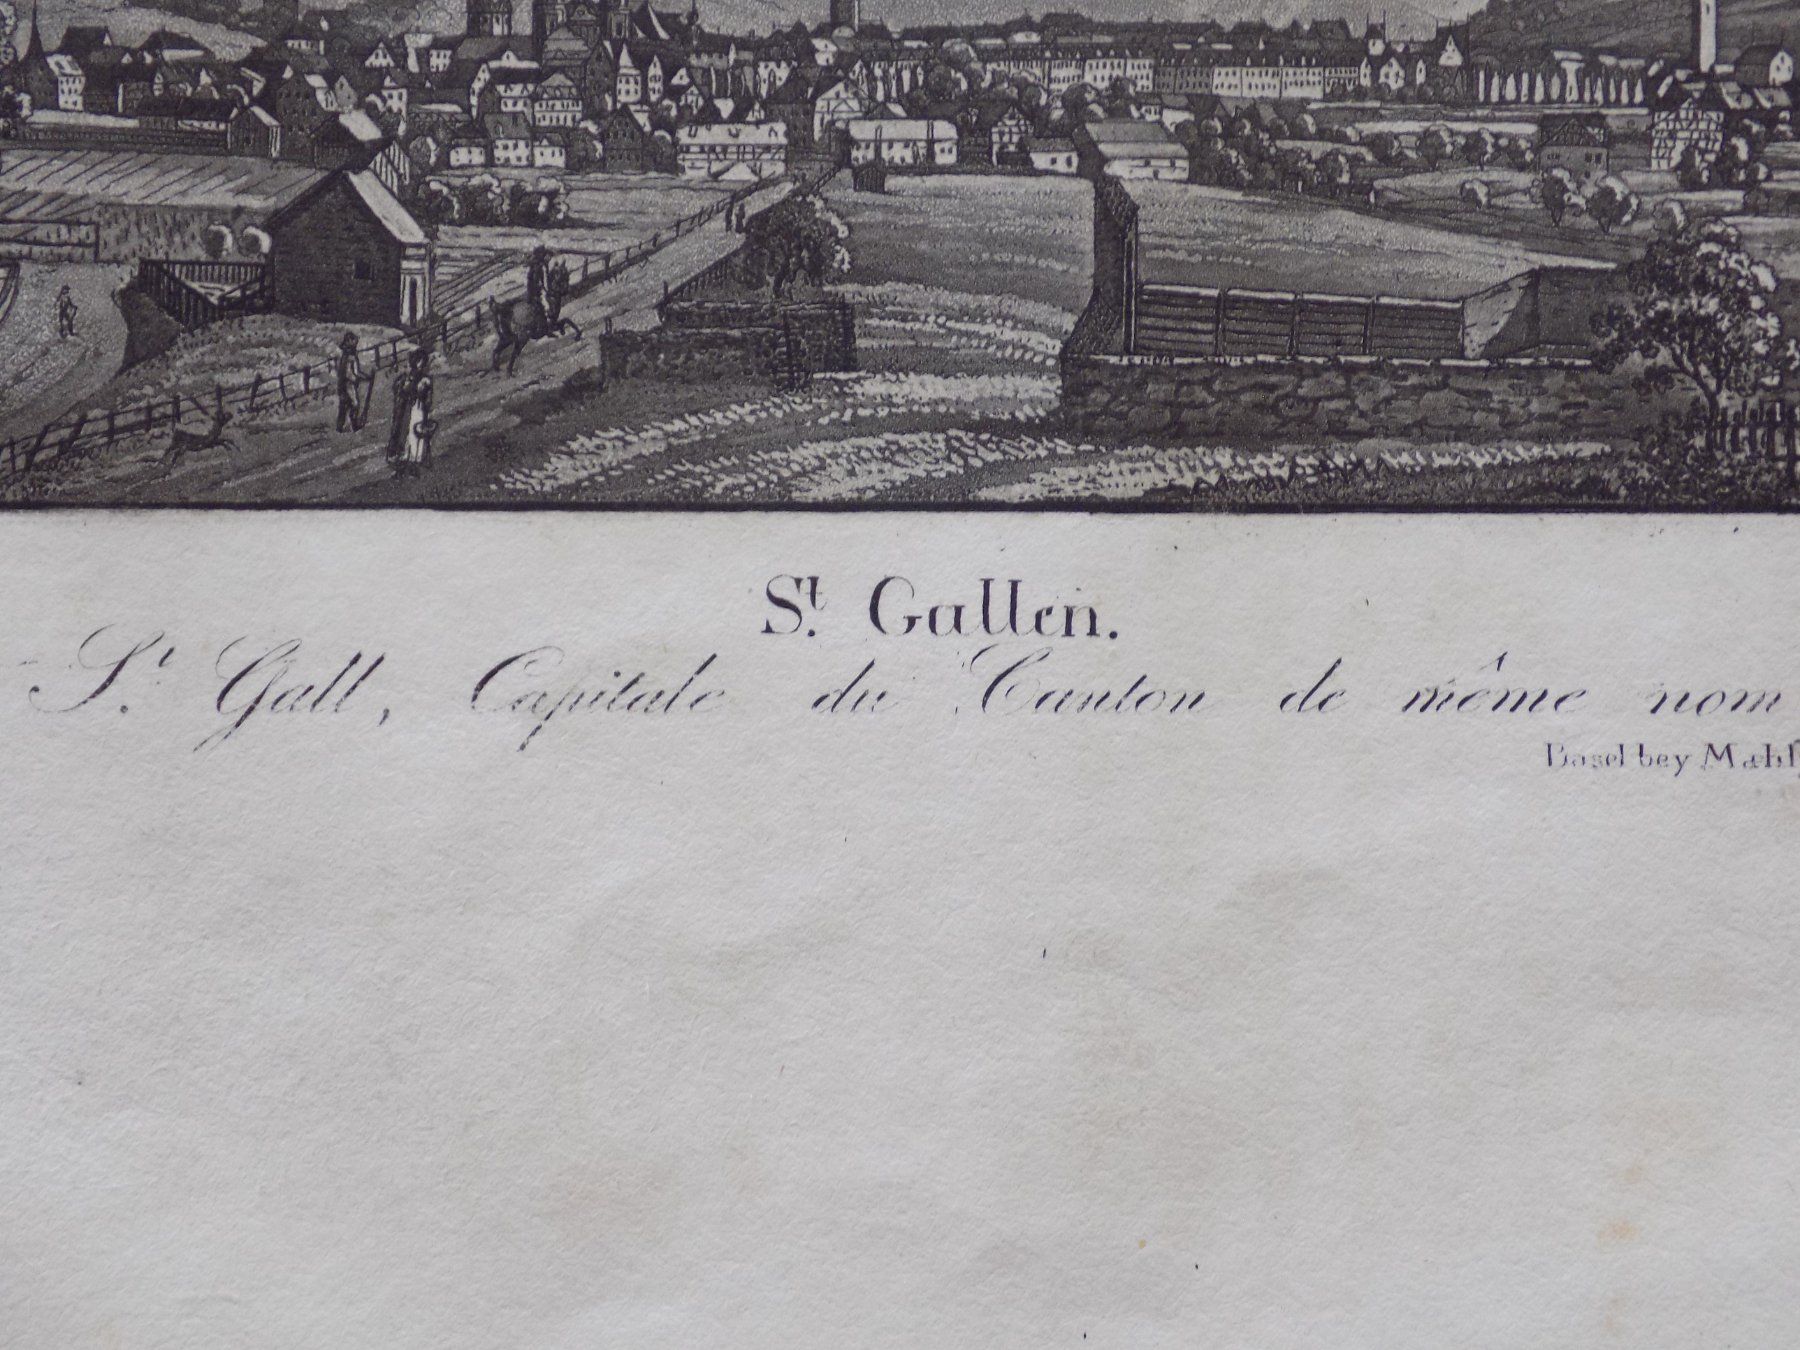 St. Gallen.
St. Gall, Capitale du Canton de même nom
Basel bey